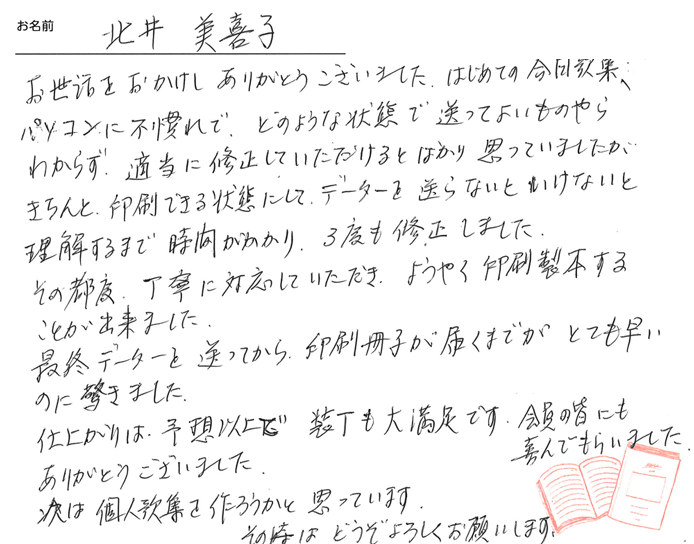 お名前 北井 美喜子
お世話をおかけしありがとうございました。はじめての合同歌集、
パソコンに不慣れで、どのような状態で送ってよいものやら
わからず、適当に修正していただけるとばかり思っていましたが
きちんと、印刷できる状態にして、データーを送らないといけないと
理解するまで時間がかかり、3度も修正しました。
その都度、丁寧に対応していただき、ようやく印刷製本する
ことが出来ました。
最終データーを送ってから、印刷冊子が届くまでがとても早い
のに驚きました。
仕上がりは、予想以上で 装丁も大満足です。会員の皆にも
喜んでもらいました。
ありがとうございました。
次は個人歌集を作ろうかと思っています。
その時はどうぞよろしくお願いします。